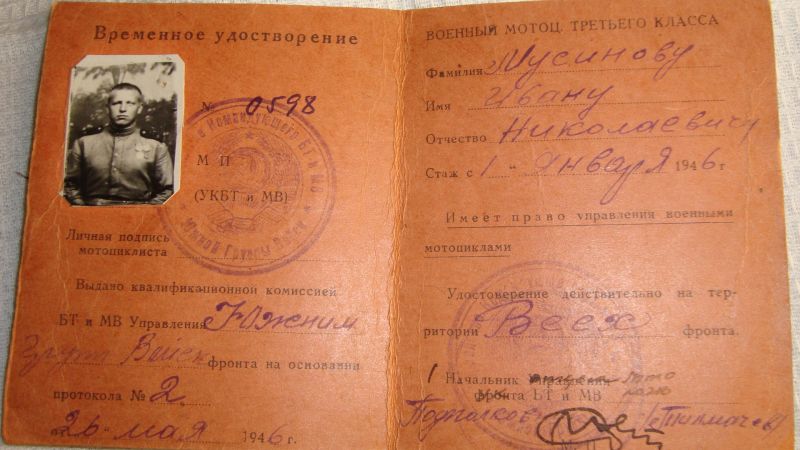 Временное удостворение
№ 0598
Командующего БТ и МВ
Южной Группы Войск
М П
(УКБТ и МВ)
Личная подпись
мотоциклиста
Выдано квалификационной комиссией
БТ и МВ Управления Южним
Групп Войск фронта на основании
протокола № 2
„26“ мая 1946 г.
ВОЕННЫЙ МОТОЦ. ТРЕТЬЕГО КЛАССА
Фамилия Мусинову
Имя Ивану
Отчество Николаевичу
Стаж с „1“ января 1946 г
Имеет право управления военными
мотоциклами
Удостоверение действительно на тер-
ритории Всех фронта.
Начальник Управления
фронта БТ и МВ
Подполков (Толмачев)